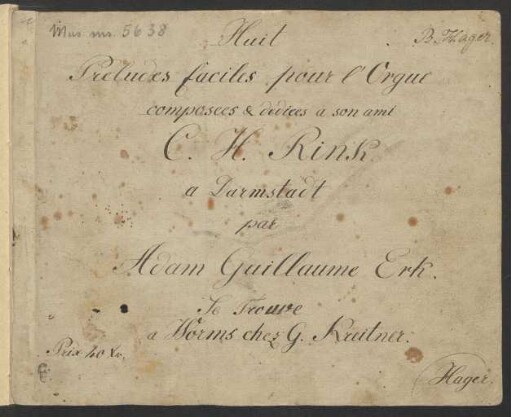 Mus. ms. 5638
Huit
B. Hager.
Preludes faciles pour l'Orgue
composees & dediees a son ami
C. H. Rink.
a Darmstadt
par
Adam Guillaume Erk.
Se Trouve
a Worms chez G. Kreitner.
Prix 40 Xr.
Hager.